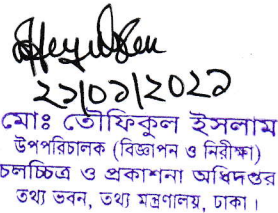 ২১/০১/২০২১
মোঃ তৌফিকুল ইসলাম
উপপরিচালক (বিজ্ঞাপন ও নিরীক্ষা)
চলচ্চিত্র ও প্রকাশনা অধিদপ্তর
তথ্য ভবন, তথ্য মন্ত্রণালয়, ঢাকা।